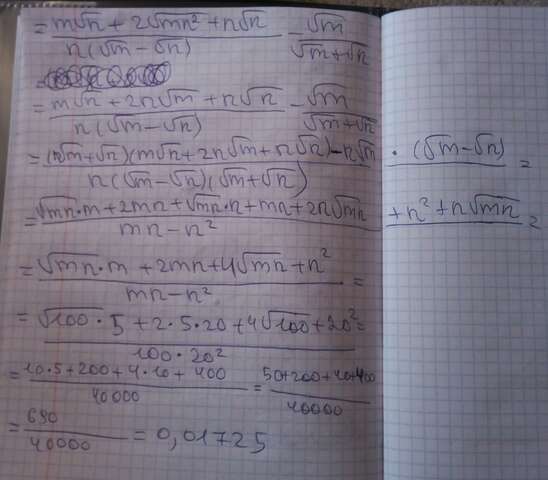 = (m√n + 2√mn² + n√n) / (n(√m - √n)) - √m / (√m + √n)
= (m√n + 2n√m + n√n) / (n(√m - √n)) - √m / (√m + √n)
= ((√m + √n)(m√n + 2n√m + n√n) - n√m · (√m - √n)) / (n(√m - √n)(√m + √n)) =
= (√mn · m + 2mn + √mn · n + mn + 2n√mn + n² + n√mn) / (mn - n²) =
= (√mn · m + 2mn + 4√mn + n²) / (mn - n²) =
= (√100 · 5 + 2 · 5 · 20 + 4√100 + 20²) / (100 · 20²) =
= (10 · 5 + 200 + 4 · 10 + 400) / 40000 = (50 + 200 + 40 + 400) / 40000
= 690 / 40000 = 0,01725